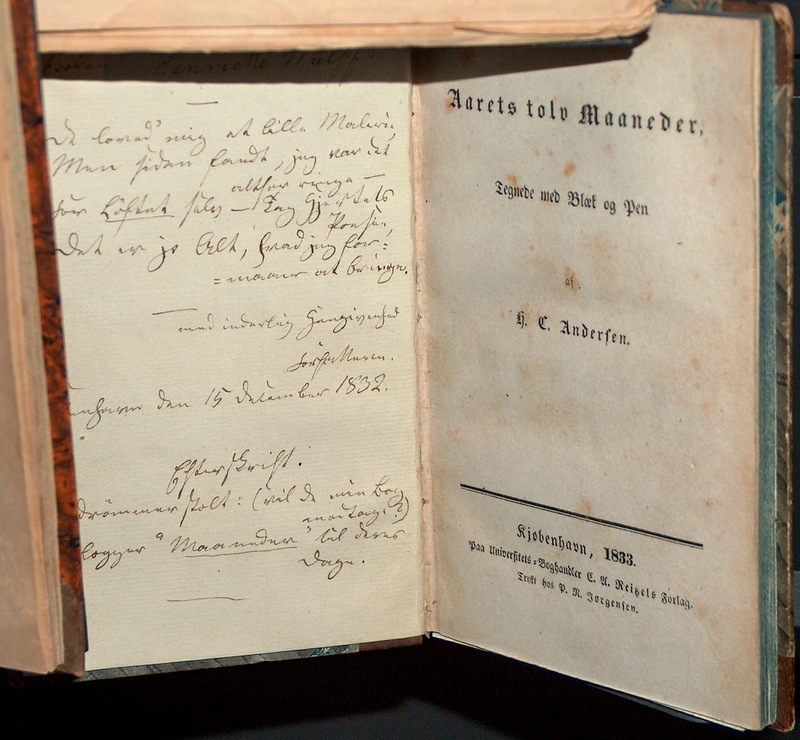 Henriette Wulff
De loved' mig et lille Maleri,
Men siden fandt, jeg var det
altfor ringe —
for Løftet selv — Tag Hjertets
Poesie,
Det er jo Alt, hvad jeg for=
=maaer at bringe.
med inderlig Hengivenhed
Forfatteren.
den 15 December 1832.
Efterskrift.
drømmer stolt: (vil De min Bog
modtage?)
lægger "Maaneder" til Deres
Dage.
Aarets tolv Maaneder,
Tegnede med Blæk og Pen
af
H. C. Andersen.
Kjøbenhavn, 1833.
Paa Universitets=Boghandler C. A. Reitzels Forlag.
Trykt hos P. N. Jørgensen.